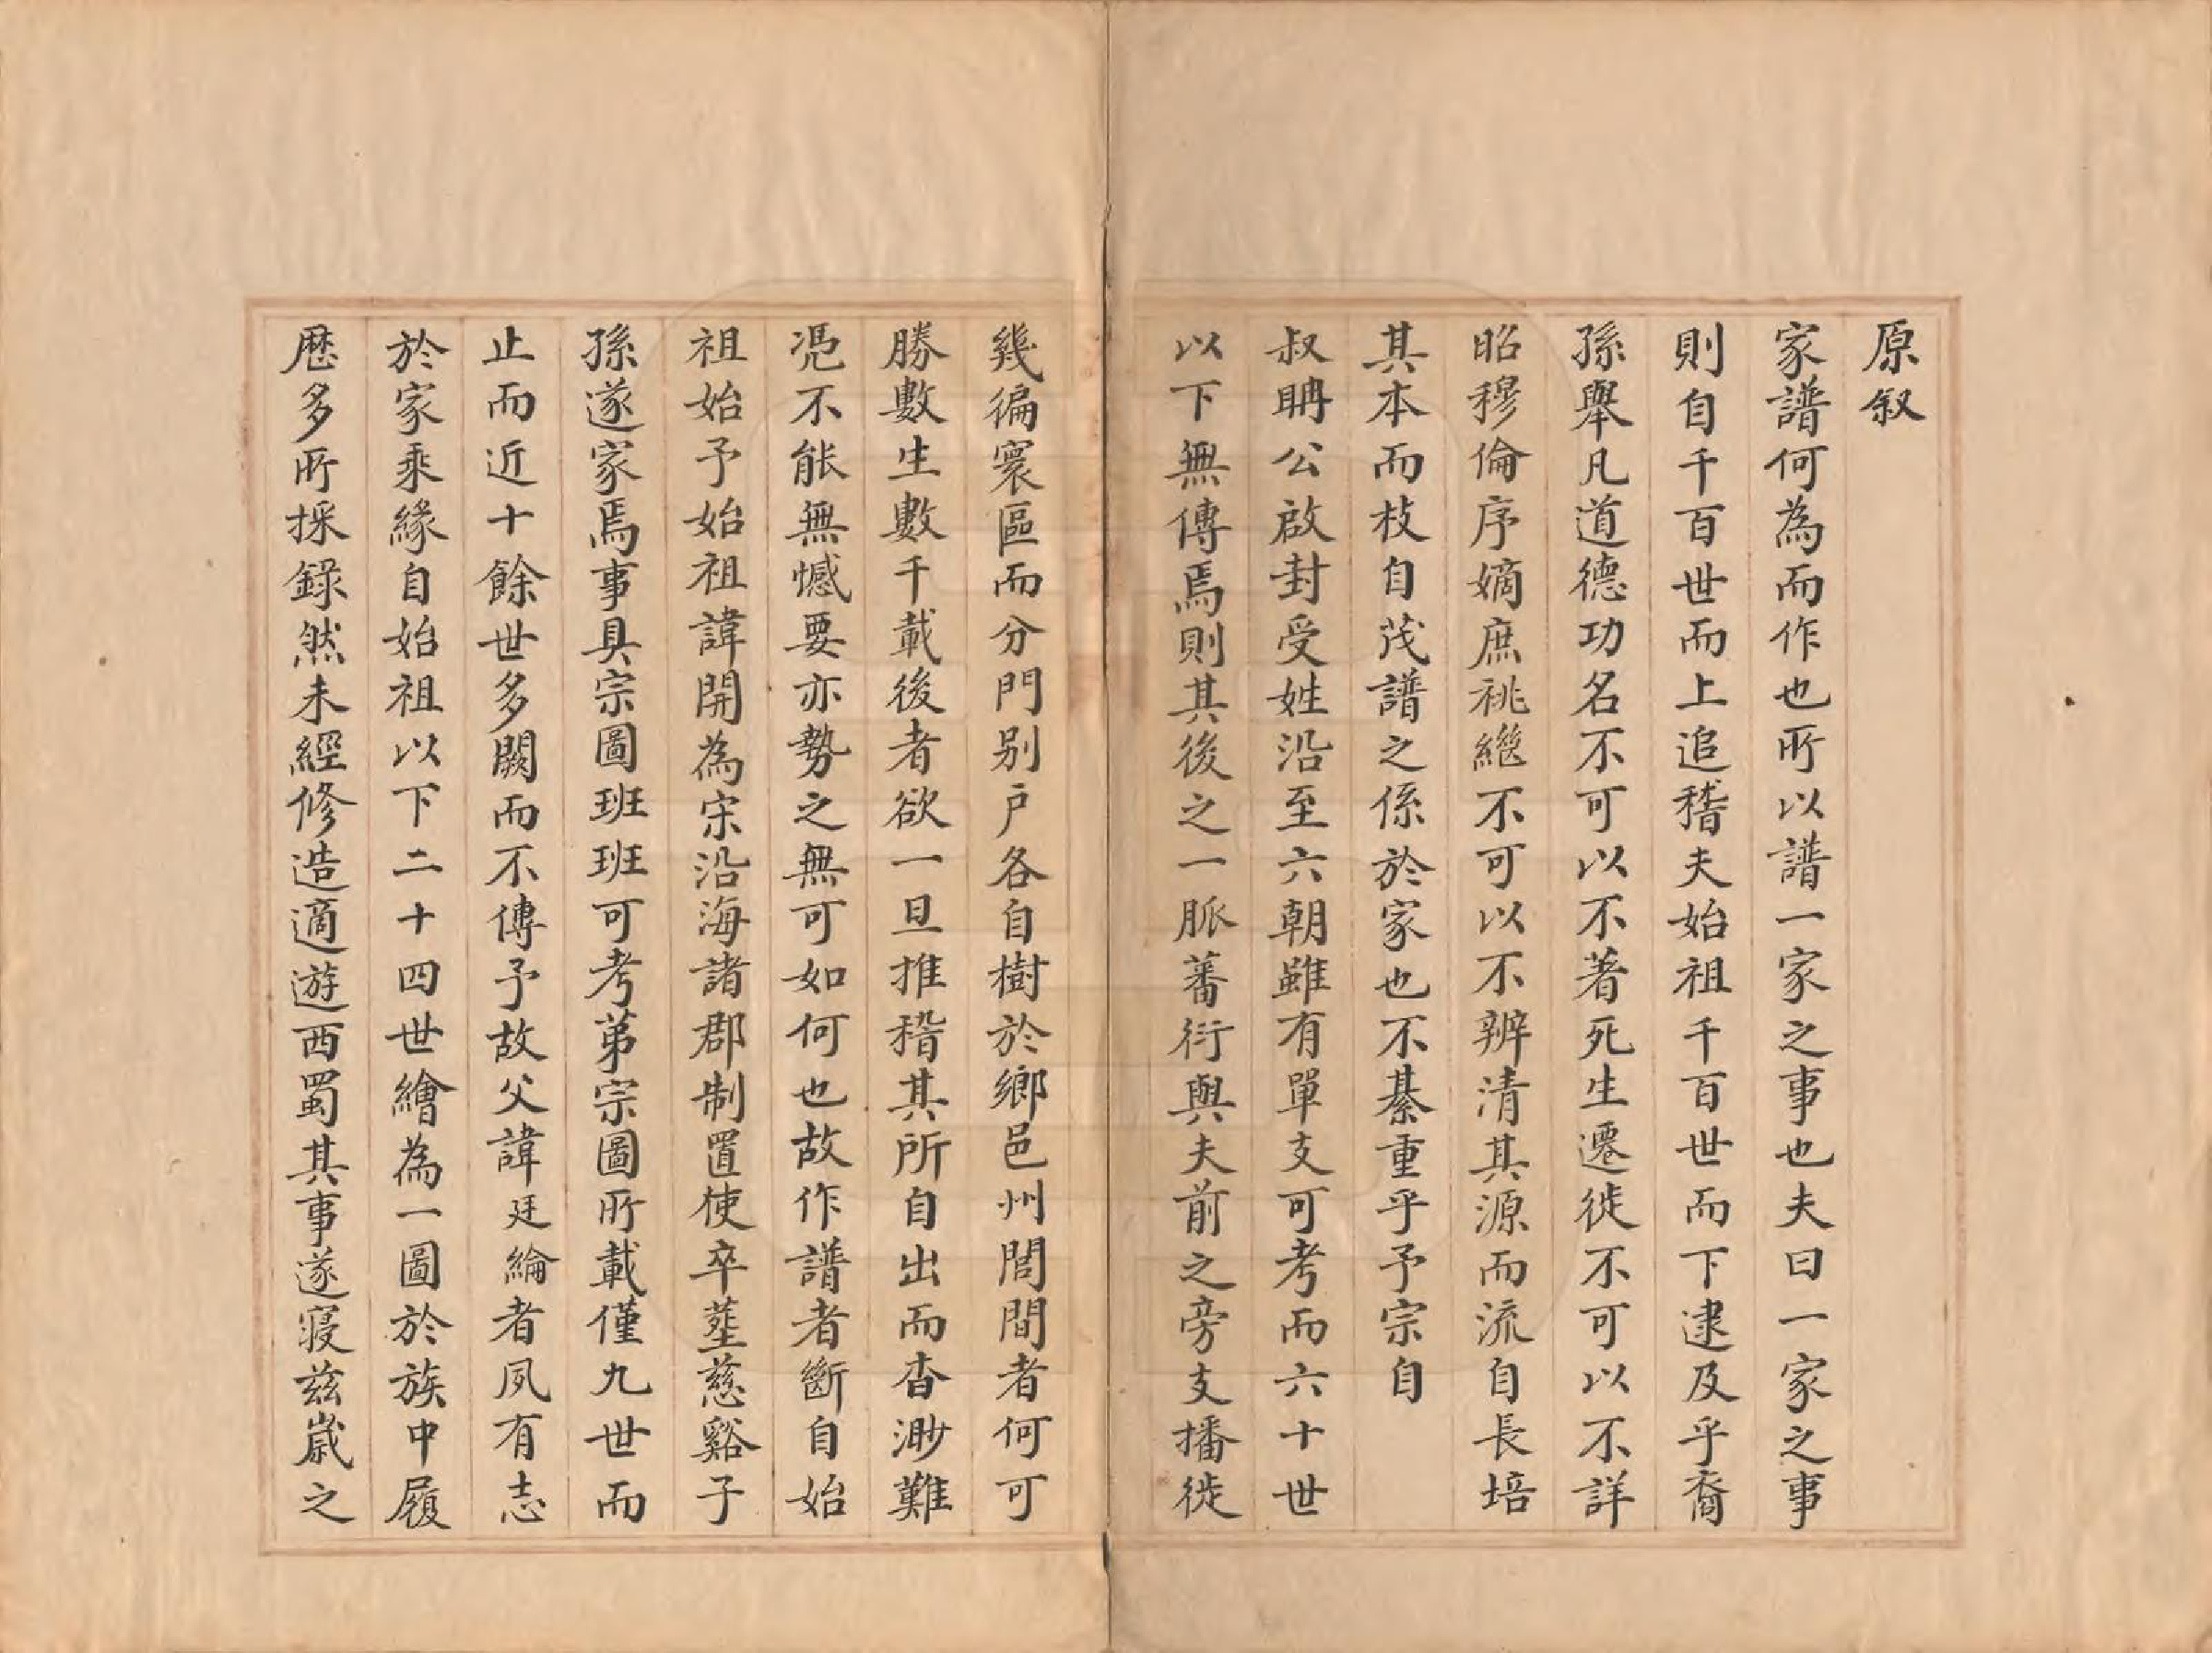 原叙
家譜何為而作也所以譜一家之事也夫曰一家之事
則自千百世而上追稽夫始祖千百世而下逮及乎裔
孫舉凡道德功名不可以不著死生遷徙不可以不詳
昭穆倫序嫡庶祧繼不可以不辨清其源而流自長培
其本而枝自茂譜之係於家也不綦重乎予宗自
叔聃公啟封受姓沿至六朝雖有單支可考而六十世
以下無傳焉則其後之一脈蕃衍與夫前之旁支播徙
幾徧寰區而分門别戶各自樹於鄉邑州閭間者何可
勝數生數千載後者欲一旦推稽其所自出而杳渺難
凴不能無憾要亦勢之無可如何也故作譜者斷自始
祖始予始祖諱開為宋沿海諸郡制置使卒塟慈谿子
孫遂家焉事具宗圖班班可考第宗圖所載僅九世而
止而近十餘世多闕而不傳予故父諱廷綸者夙有志
於家乘緣自始祖以下二十四世繪為一圖於族中履
歷多所採錄然未經修造適遊西蜀其事遂寢兹嵗之